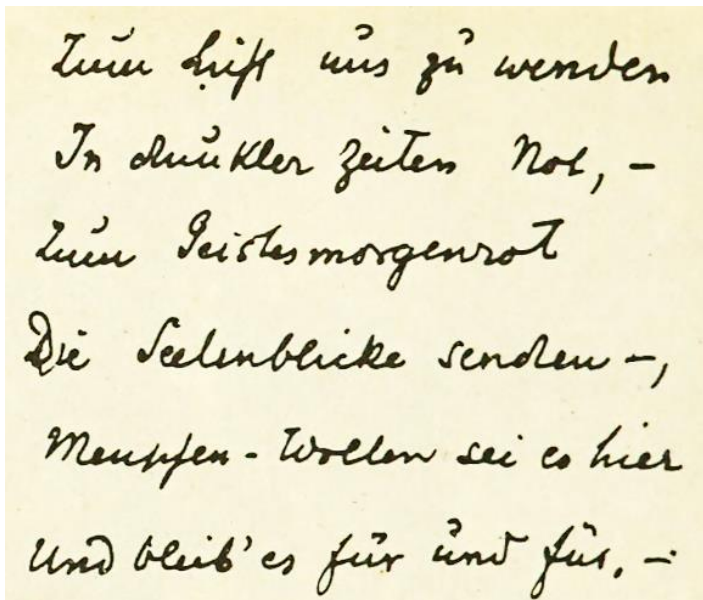 Zum Licht uns zu wenden
In dunkler Zeiten Not, –
Zum Geistesmorgenrot
Die Seelenblicke senden –,
Menschen-Wollen sei es hier
Und bleib' es für und für. –